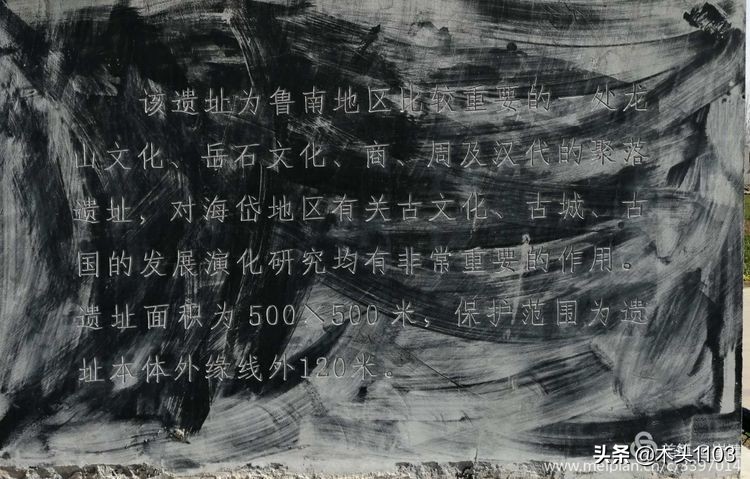 该遗址为鲁南地区比较重要的一处龙
山文化、岳石文化、商、周及汉代的聚落
遗址，对海岱地区有关古文化、古城、古
国的发展演化研究均有非常重要的作用。
遗址面积为500×500米，保护范围为遗
址本体外缘线外120米。
头条 @木头1103
www.meipian.cn/c/3397014